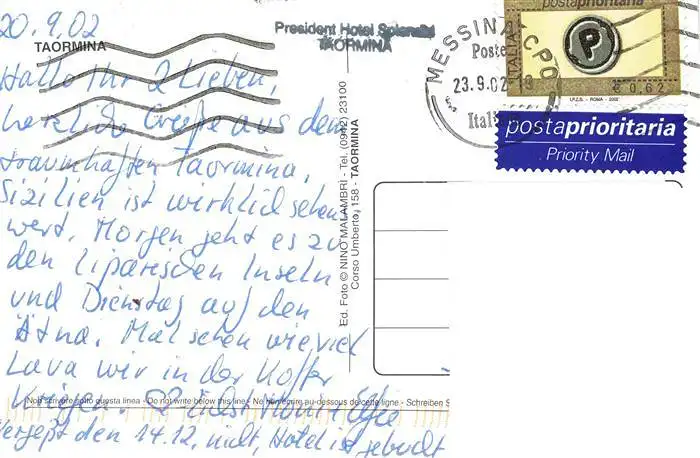 20.9.02
TAORMINA
President Hotel Splendid
TAORMINA
Hallo Ihr 2 Lieben,
herzliche Grüße aus dem
traumhaften Taormina,
Sizilien ist wirklich sehens
wert. Morgen geht es zu
den liparischen Inseln
und Dienstag auf den
Ätna. Mal sehen wieviel
Lava wir in der Koffer
kriegen.
Vergeßt den 14.12. nicht, Hotel ist gebucht
Non scrivere sotto questa linea - Do not write below this line - Ne rien écrire au-dessous de cette ligne - Schreiben S
Ed. Foto © NINO MALAMBRÌ - Tel. (0942) 23100
Corso Umberto, 158 - TAORMINA
MESSINA CPO
Poste
23.9.02
Ital
postaprioritaria
ITALIA
P
€ 0,62
I.P.Z.S. - ROMA - 2002
postaprioritaria
Priority Mail